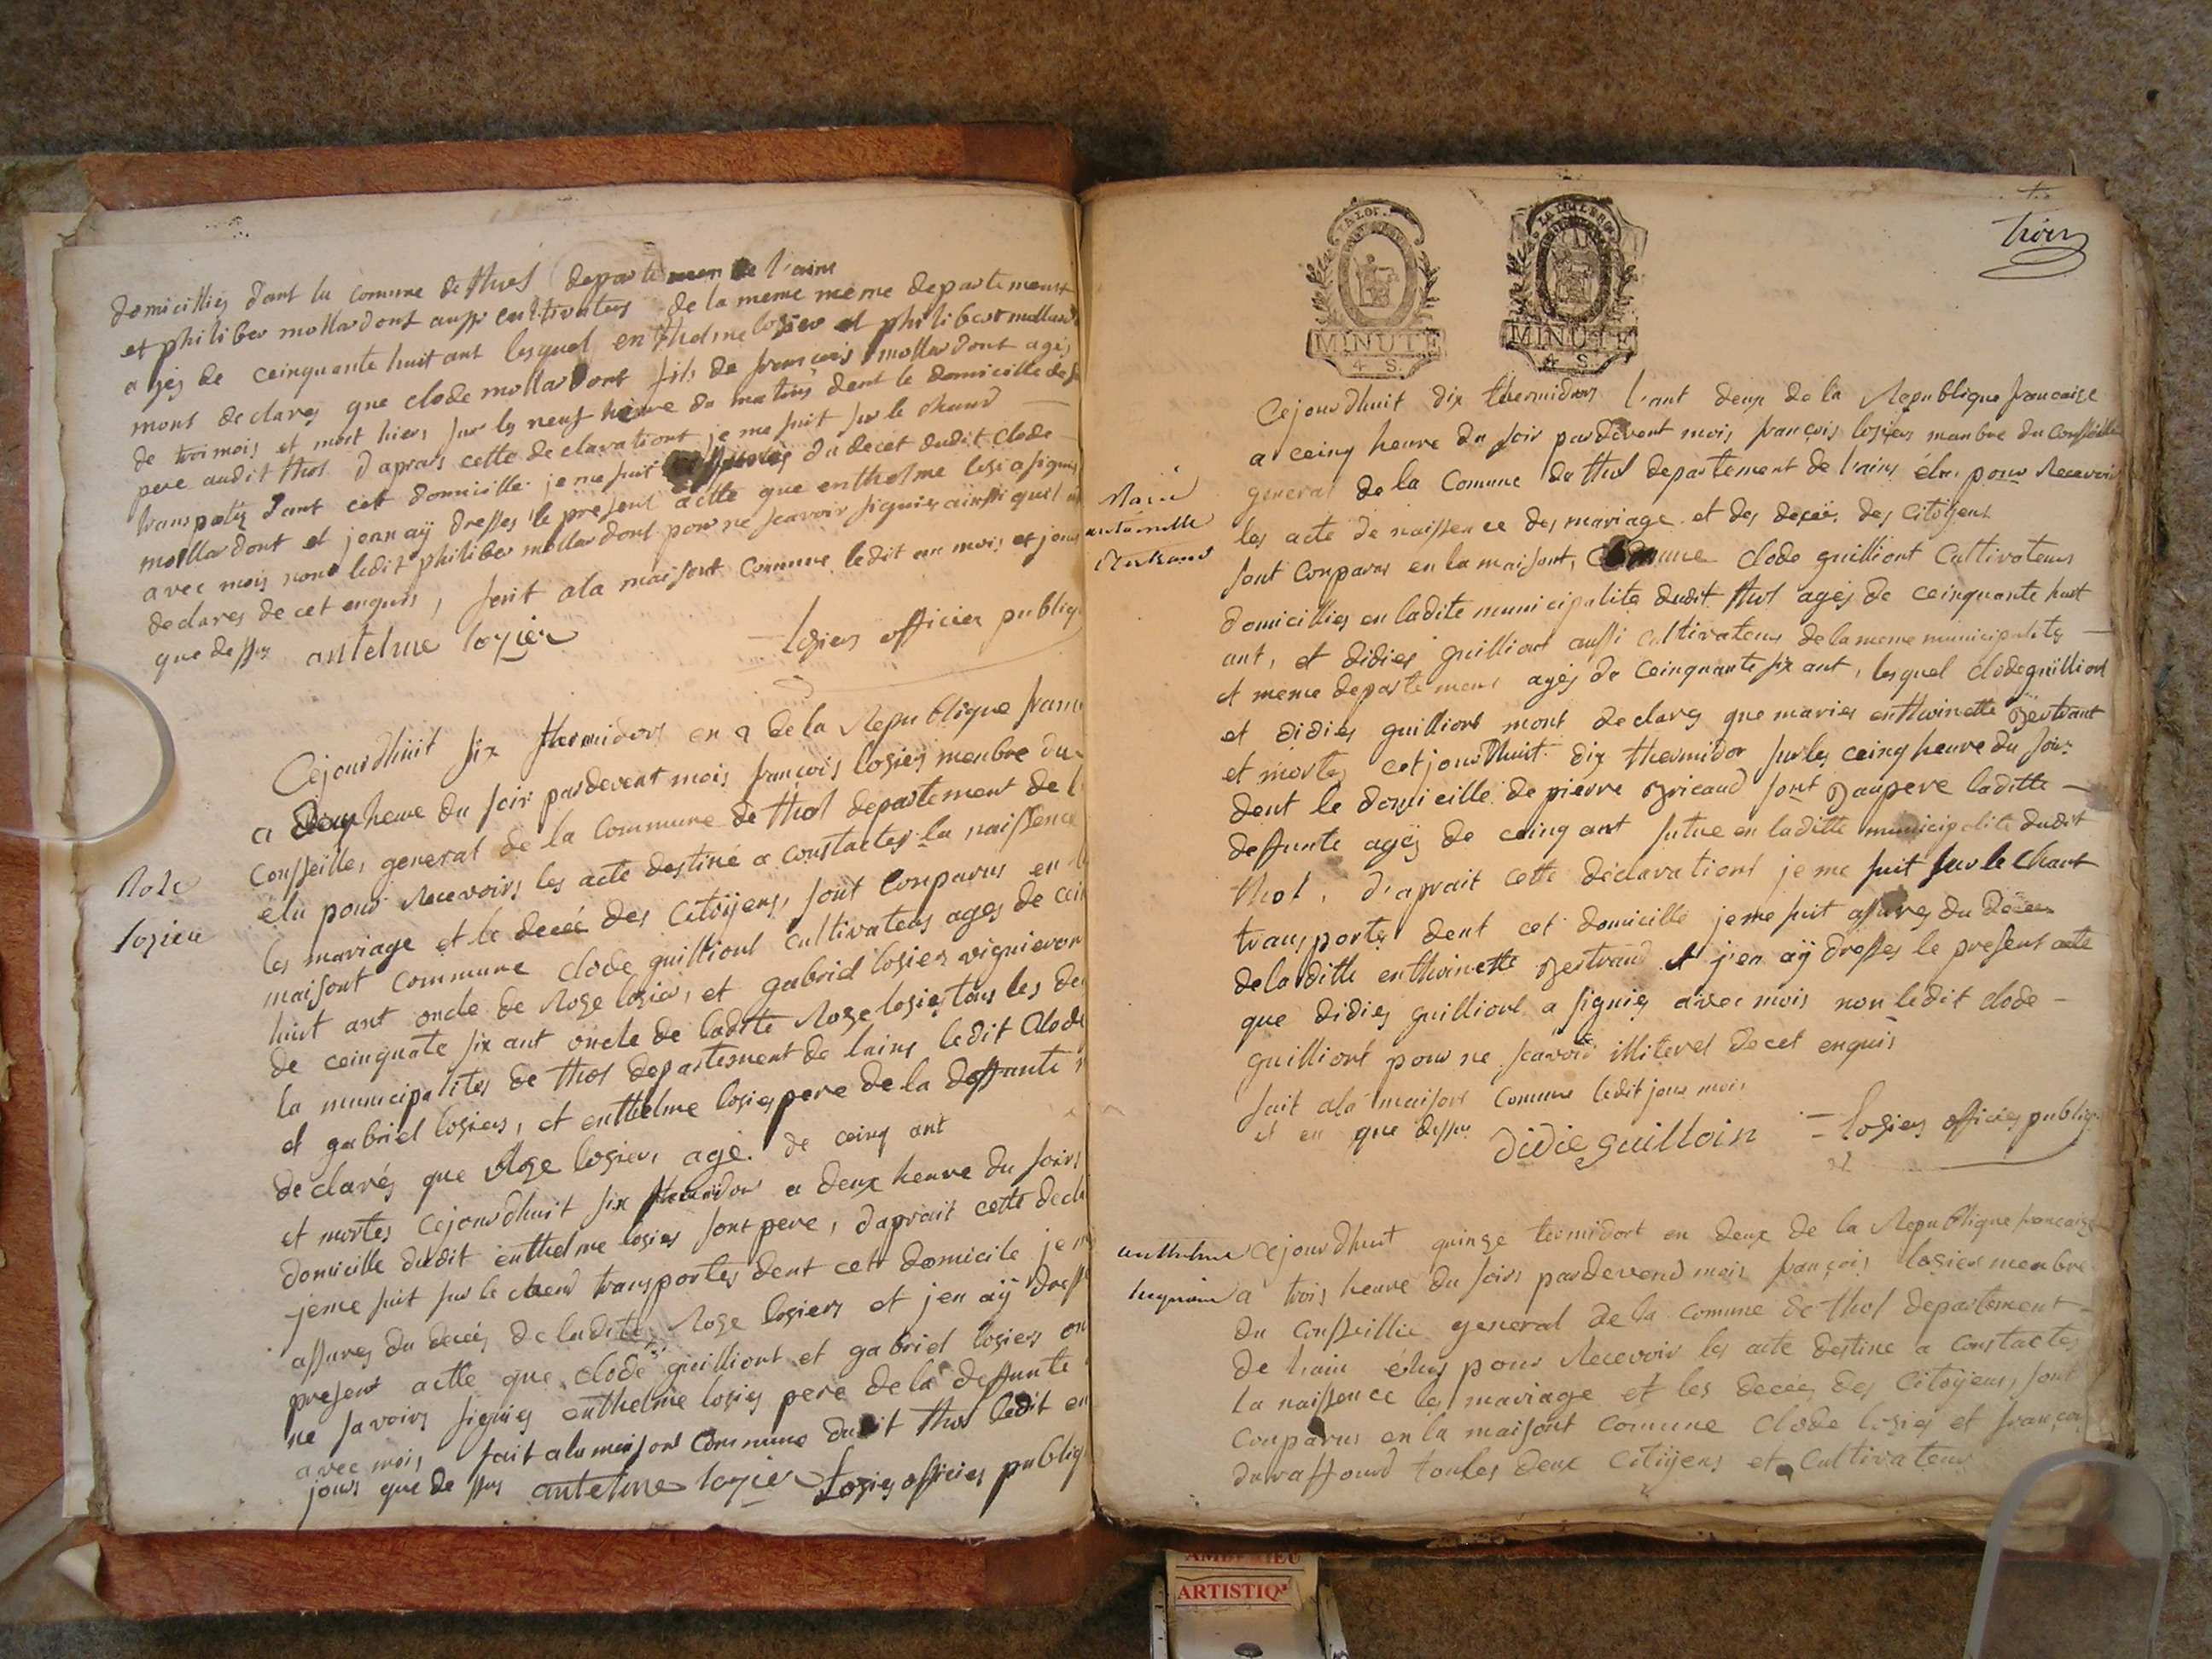 domicilliés dant la comune de thol departemen de l'ains
et philiber mollardont aussi cultivateurs de la meme meme departement
agés de ceinquante huit ant lesquel enthelme losier et philiber mollard
mont declarez que clode mollardont fils de françois mollardont agés
de troi mois et mort hiers sur les neuf heure du matins dent le domicille de
pere audit thol d'aprais cette declarationt je me suit sur le chand
transportés dant cet domicille je me suit du decet dudit clode
mollardont et jenn aÿ dresses le present actte que enthelme losi a signés
avec mois nont ledit philiber mollardont pour ne scavoir signiés ainssi quil
declares de cet enquis, fait a la maisont comune ledit an mois et jour
que dessus antelme logier losiers officier publiq
Cejourdhuit six thermidors en 2 de la Republique franc
a deux heure du soir pardevent mois françois losiers menbre du
Rose
losier
Conseilles general de la Commune de thol departement de l
élu pour Recevoirs les acte destiné a constactes la naissence
les mariage et le deceé des Citoÿens, sont Conparus en l
maisont Commune clode guilliont cultivateurs ages de cein
huit ant oncle de Rose losier, et gabriel losiers vignieron
de ceinquate six ant oncle de ladite Roze losiers tous les de
la municipalites de thol departesment de lains ledit Clode
et gabriel losiers, et enthelme losies pere de la deffunte
declarés que Roze losiers, agé de ceinq ant
et mortes cejourdhuit six thermidor a deux heure du soirs
domicille dudit enthelme losies sont pere, d'aprait cette decla
jeme suit sur le chend transportes dent cet domicile je m
assures du deceés de ladite Roze losiers et jen aÿ dress
present actte que clode guilliont et gabriel losiers on
ne savoirs signies enthelme losies pere de la deffunte
avec mois, fait a la maisont Commune dudit thol ledit en
jours que dessus antelme logier Losies officies publiq
trois
LA LOI
MINUTE
4 S.
MINUTE
4 S.
Cejourdhuit dix thermidors l'ant deux de la Republique francaise
a ceinq heure du soir pardevent mois françois losiers manbre du Consseille
Marie
anturnette
Bertrand
general de la Comune de thol departement de l'ains élu pour Recevoir
les acte de naissence des mariage et des deceé des Citoÿent
sont Conparus en la maisont, Comune clode guilliont Cultivateurs
domicilliés en ladite municipalité dudit thol agés de ceinquante huit
ant, et didies guilliont aussi cultivateurs de la meme municipalités
et meme departement agés de ceinquante six ant, lesquel clode guilliont
et didies guilliont mont declares que maries enthoinette Bertrant
et mortes cetjourdhuit dix thermidor sur les ceinq heure du soir
dent le domicille de pierre Bricaud sont Baupere laditte
deffunte agés de ceinq ant situe en laditte municipalite dudit
thol, d'aprait cette declarationt je me suit sur le Chant
transportes dent cet domicille je me suit assures du Decee
de laditte enthoinette Bertrand et j'en aÿ dresses le present acte
que didies guilliont a signies avec mois non ledit clode
guilliont pour ne scavoir illiteret de cet enquis
fait ala maisont Comune ledit jour mois
et en que dessus didie guilloin losiers officies publiq
anthelme
Cejourdhuit quinze termidort en deux de la Republique francaise
a trois heure du soirs pardevend mois françois losiers menbre
du Conseillie general de la comune de thol departement
de lain élus pour Recevoir les acte destine a constactes
la naissence les mariage et les deceés des Citoÿens, sont
Conparus en la maisont Comune Clode losies et françois
duraffourd toutes deux Citiÿens et Cultivateur
ARTISTIQ